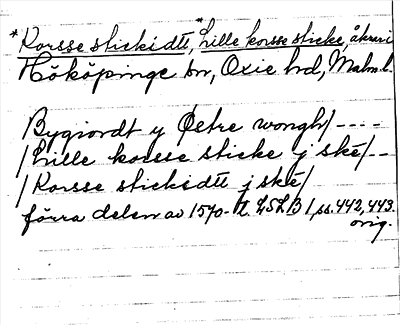 *Korsse stickidtt, *Lille korsse sticke, åkrar i
Hököpinge sn, Oxie hd, Malm.l.
Bygiordt y Östre wongh/ ----
/Lille korsse sticke j ske/--
/Korsse stickidtt j ske/
förra delen av 1570-t. LSLB 1, ss. 442, 443.
orig.